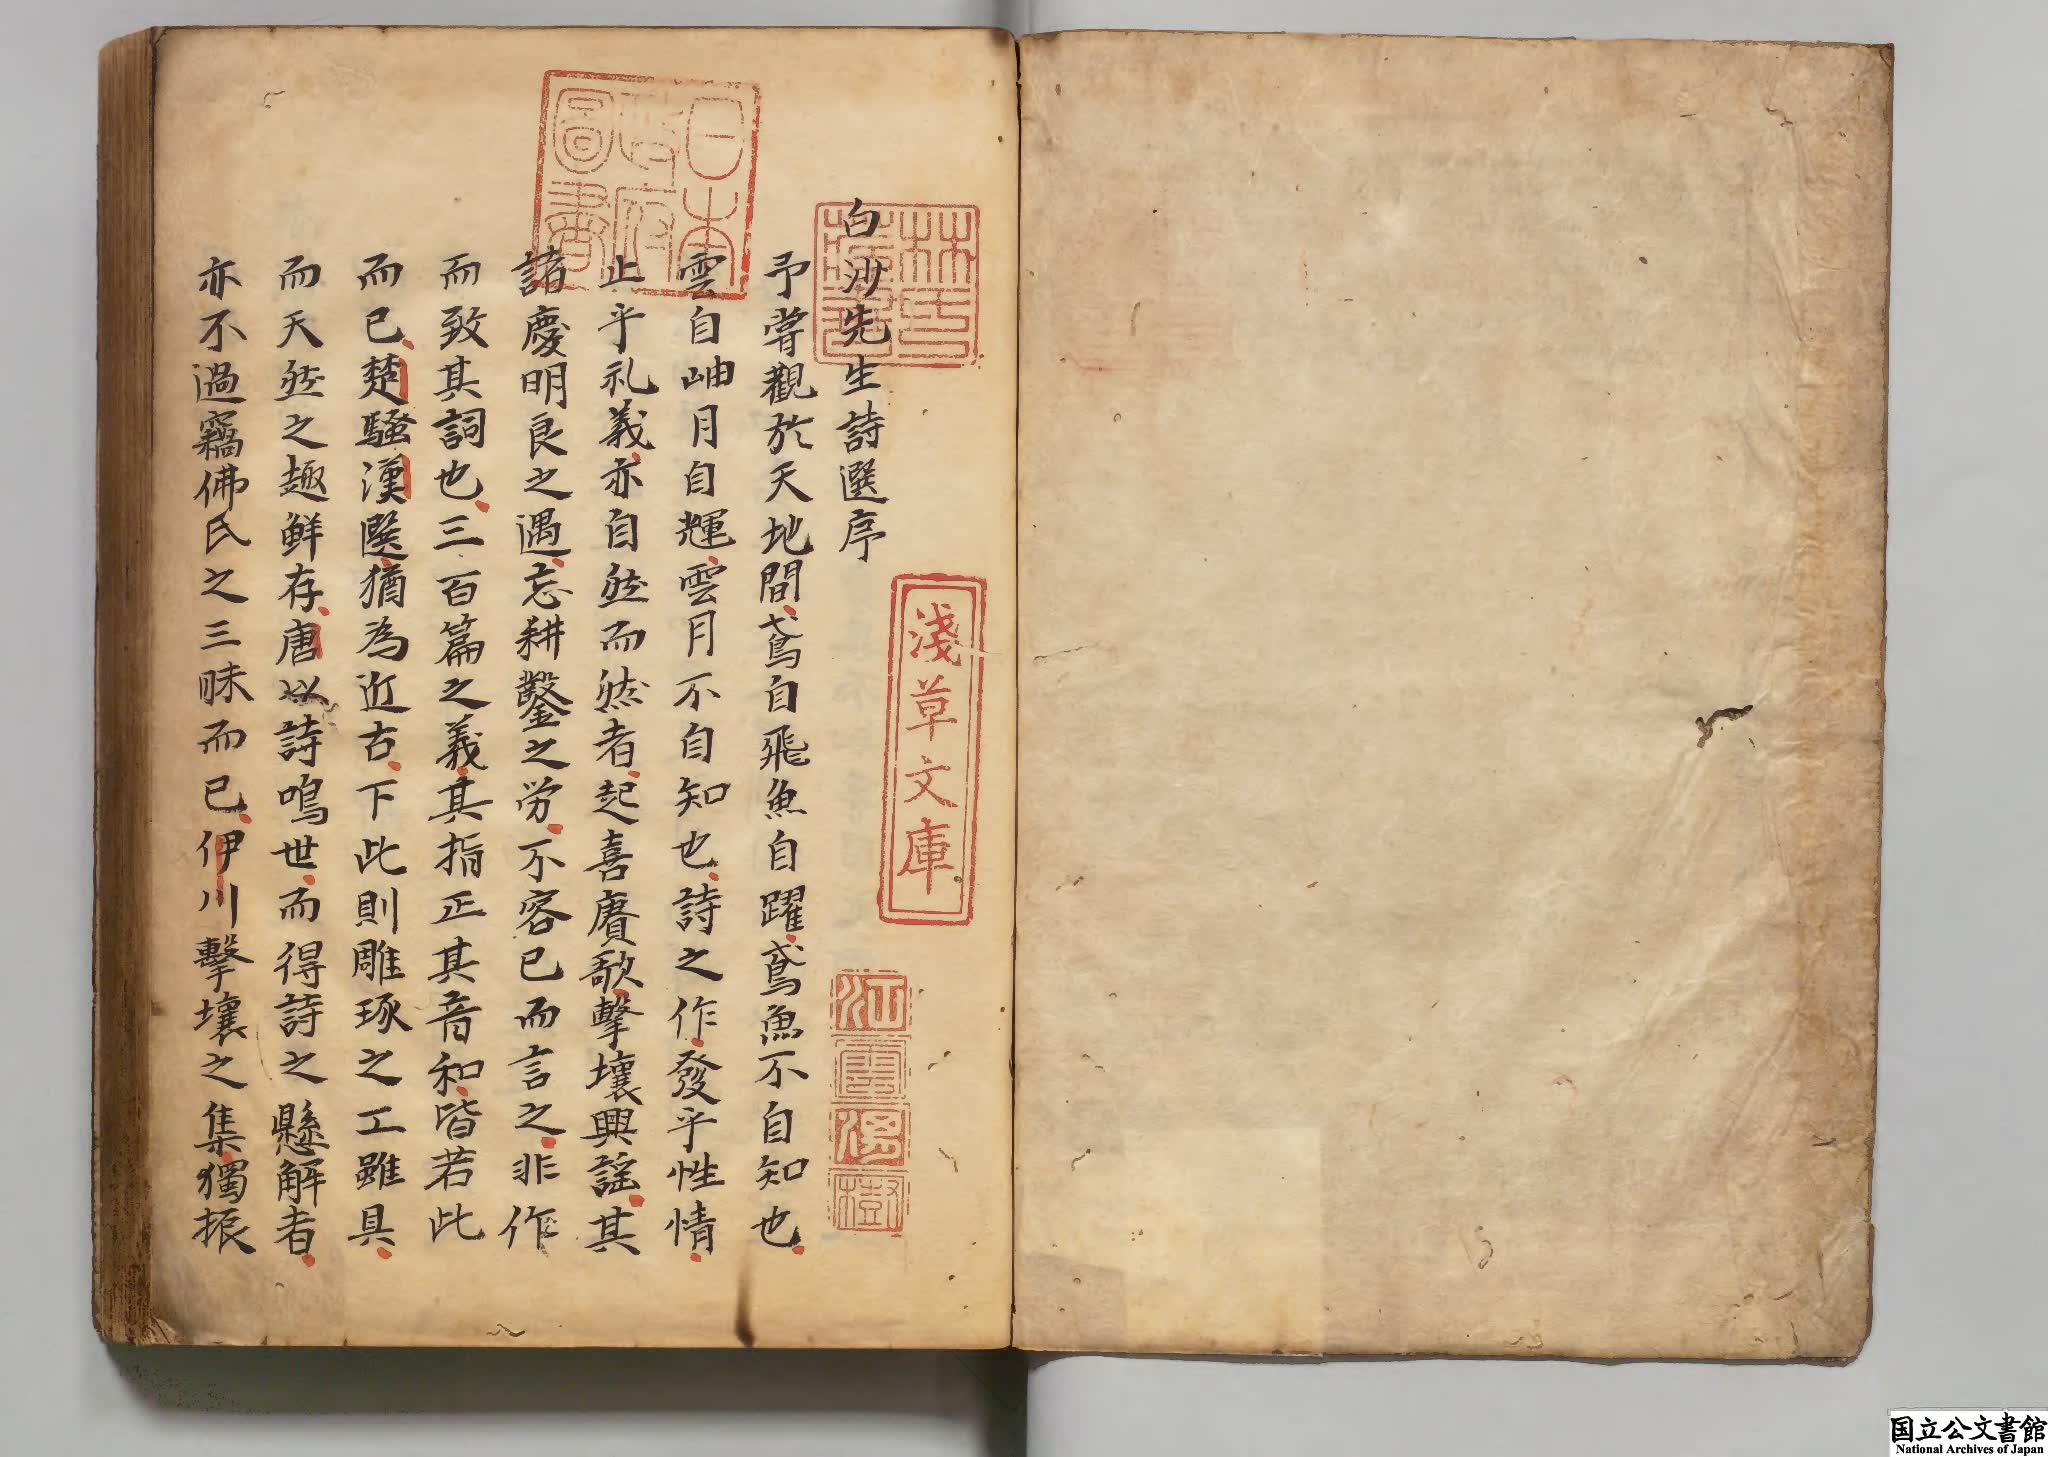 白沙先生詩選序
予嘗觀於天地間鳶自飛魚自躍鳶魚不自知也
雲自岫月自輝雲月不自知也詩之作發乎性情
止乎礼義亦自然而然者起喜賡歌擊壤興謡其
諸慶明良之遇忘耕鑿之労不容已而言之非作
而致其詞也三百篇之義其指正其音和皆若此
而已楚騷漢選猶為近古下此則雕琢之工雖具
而天然之趣鮮存唐以詩鳴世而得詩之懸解者
亦不過竊佛氏之三昧而已伊川擊壤之集獨振
日本政府圖書
林氏藏書
淺草文庫
江雲渭樹
国立公文書館
National Archives of Japan